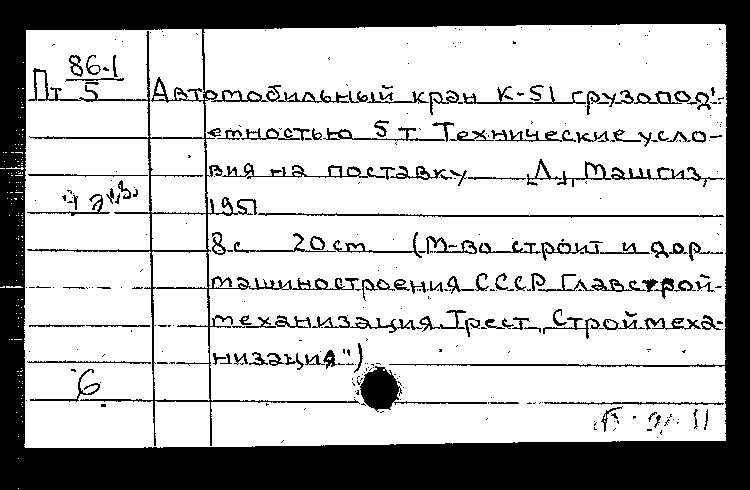 Пт 86.1
5
Автомобильный кран К-51 грузопод'-
емностью 5 т. Технические усло-
вия на поставку [Л.], Машгиз,
1951
8 с 20 см (М-во строит и дор
машиностроения СССР Главстрой-
механизация. Трест „Строймеха-
низация")
6